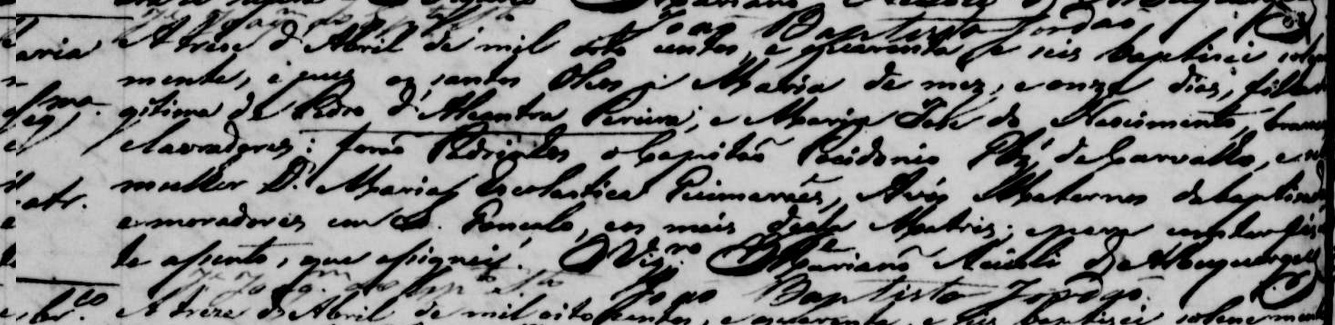 João Baptista Jordão
A trese d'Abril de mil oito centos, e quarenta e seis baptisei solem
mente, e puz os santos Oleos a Maria de mez, e onze dias, filha
gitima de Pedro d'Alcantra Pereira, e Maria José do Nascimento, brancos
e lavradores; forão Padrinhos o Capitão Posidonio de Carvalho, e
mulher D. Maria Escolastica Guimarães, Avós Maternos da baptisada
e moradores em S. Gonçalo, e os mais desta Matriz; e para constar fis
te assento, que assignei. O Vigr.o Marianno Accioli de Albuquerque
João Baptista Jordão
A trese d'Abril de mil oito centos, e quarenta e seis baptisei solenemente